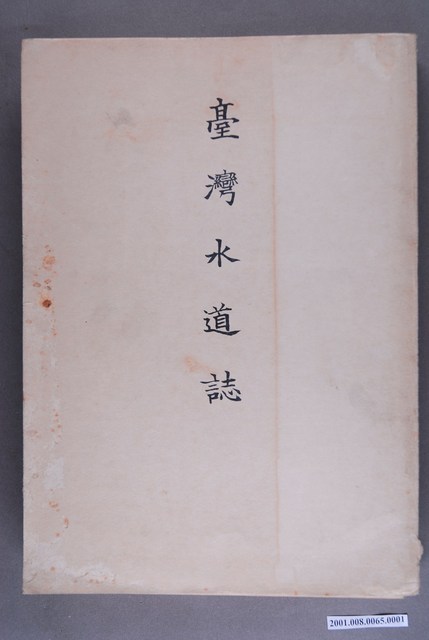 臺灣水道誌
2001.008.0065.0001